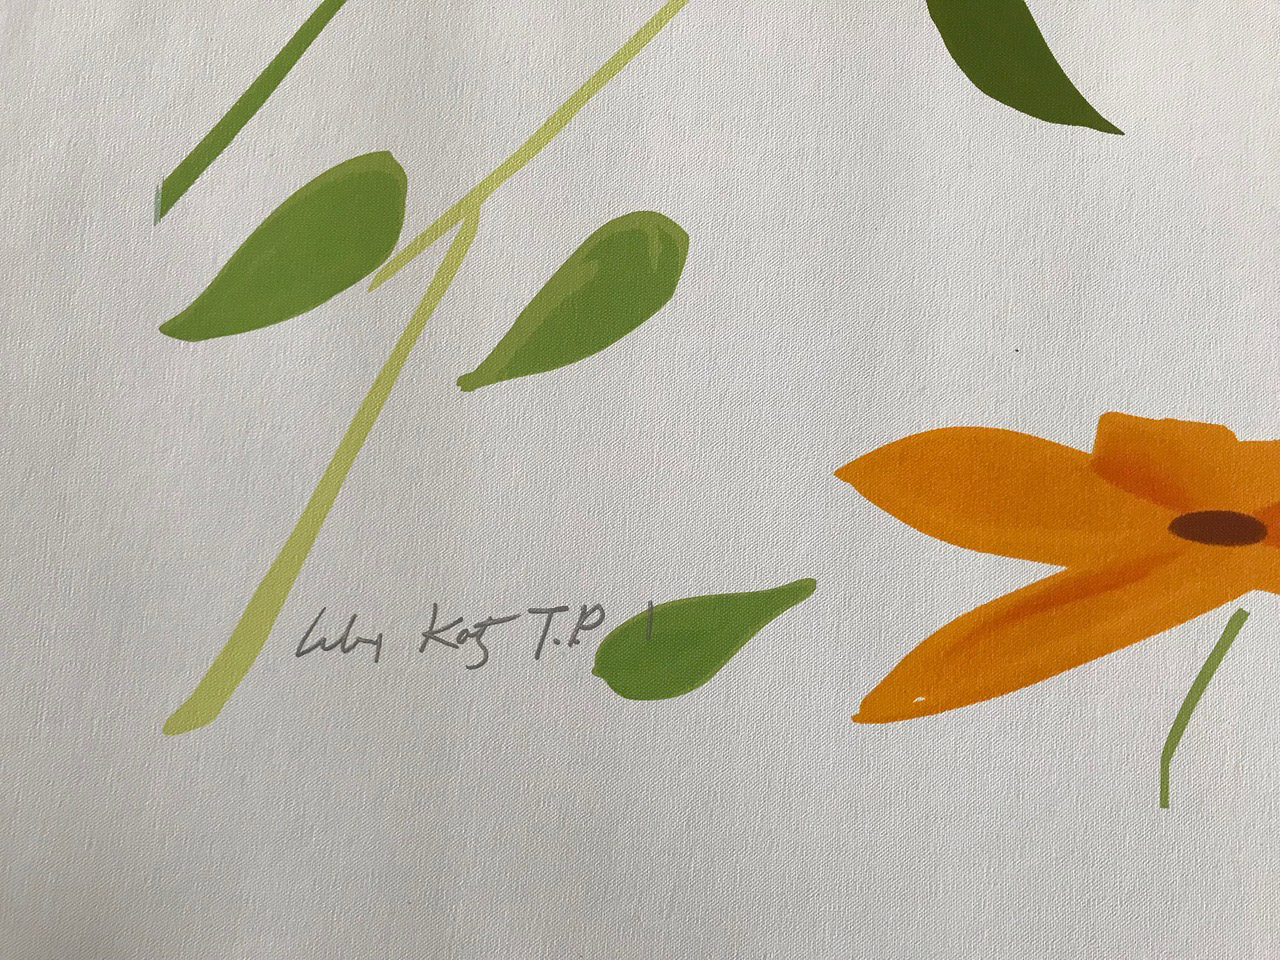 Alex Katz T.P 1